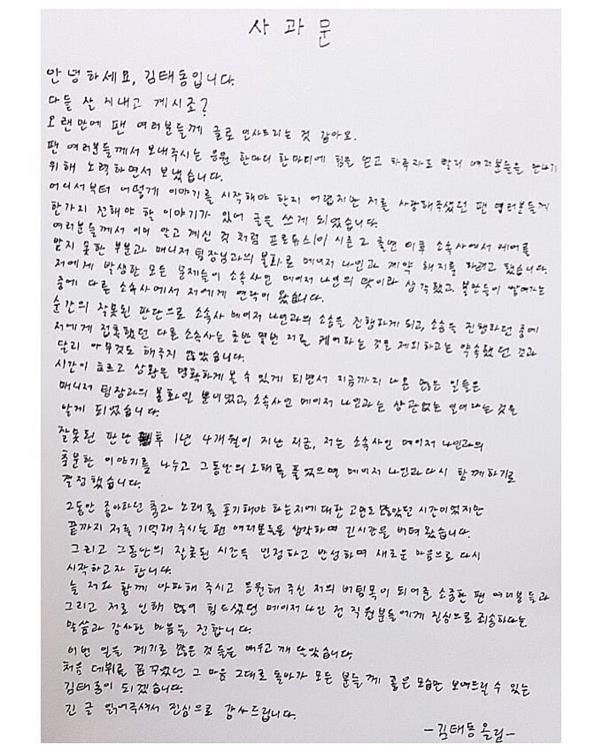 사과문
안녕하세요, 김태동입니다.
다들 잘 지내고 계시죠?
오랜만에 팬 여러분들께 글로 인사드리는 것 같아요.
팬 여러분들께서 보내주시는 응원 한마디 한마디에 힘을 얻고 하루라도 빨리 여러분들을 만나기
위해 노력하면서 보냈습니다.
어디서부터 어떻게 이야기를 시작해야 할지 어렵지만 저를 사랑해주셨던 팬 여러분들께
한가지 전해야 할 이야기가 있어 글을 쓰게 되었습니다.
여러분들께서 이미 알고 계신 것 처럼 프로듀스101 시즌2 출연 이후 소속사에서 케어를
받지 못한 부분과 매니저 팀장님과의 불화로 메이저 나인과 계약 해지를 하려고 했습니다.
저에게 발생한 모든 문제들이 소속사인 메이저 나인의 탓이라 생각했고, 불만들이 쌓여가는
중에 다른 소속사에서 저에게 연락이 왔습니다.
순간의 잘못된 판단으로 소속사 메이저 나인과의 소송을 진행하게 되고, 소송을 진행하던 중에
저에게 접촉했던 다른 소속사는 초반 몇번 저를 케어하는 것을 제외하고는 약속했던 것과
달리 아무것도 해주지 않았습니다.
시간이 흐르고 상황을 명확하게 볼 수 있게 되면서 지금까지 나온 많은 일들은
매니저 팀장과의 불화일 뿐이었고, 소속사인 메이저 나인과는 상관없는 일이라는 것을
알게 되었습니다.
잘못된 판단 후 1년 4개월이 지난 지금, 저는 소속사인 메이저 나인과의
충분한 이야기를 나누고 그동안의 오해를 풀었으며 메이저 나인과 다시 함께하기로
결정했습니다.
그동안 좋아하던 춤과 노래를 포기해야 하는지에 대한 고민도 많았던 시간이었지만
끝까지 저를 기억해 주시는 팬 여러분들을 생각하며 긴시간을 버텨왔습니다.
그리고 그동안의 잘못된 시간을 인정하고 반성하며 새로운 마음으로 다시
시작하고자 합니다.
늘 저와 함께 아파해 주시고 응원해 주신 저의 버팀목이 되어준 소중한 팬 여러분들과
그리고 저로 인해 많이 힘드셨던 메이저 나인 전 직원분들에게 진심으로 죄송하다는
말씀과 감사한 마음을 전합니다.
이번 일을 계기로 많은 것들을 배우고 깨달았습니다.
처음 데뷔를 꿈꾸었던 그 마음 그대로 돌아가 모든 분들께 좋은 모습만 보여드릴 수 있는
김태동이 되겠습니다.
긴 글 읽어주셔서 진심으로 감사드립니다.
-김태동 올림-